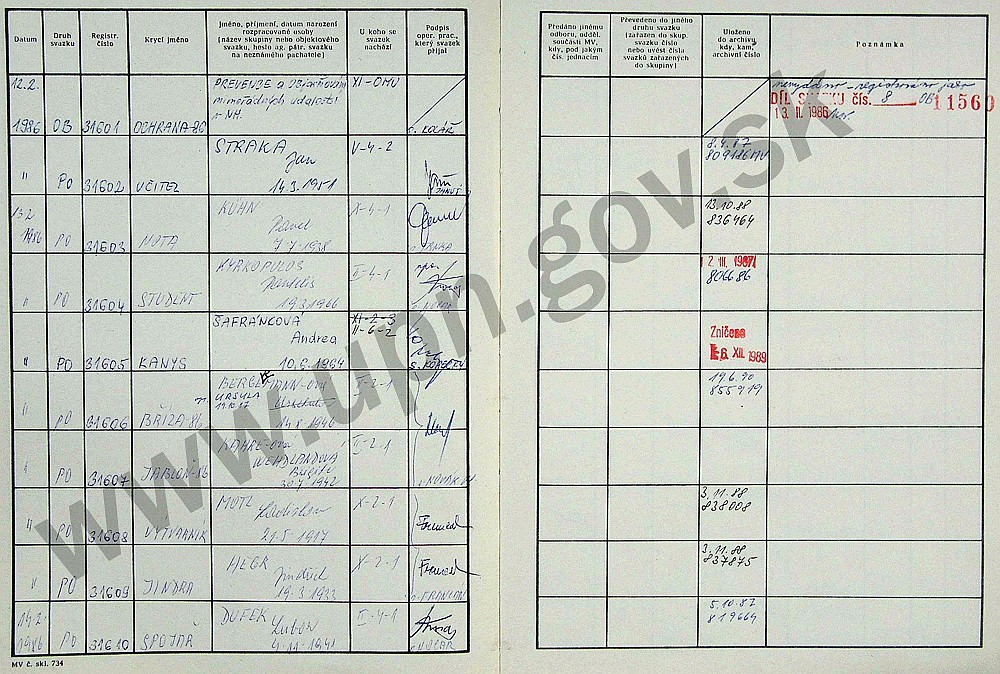 Datum
Druh svazku
Registr. číslo
Krycí jméno
Jméno, příjmení, datum narození rozpracované osoby (název skupiny nebo objektového svazku, heslo ag. pátr. svazku na neznámého pachatele)
U koho se svazek nachází
Podpis oper. prac., který svazek přijal
Předáno jinému odboru, odděl. součásti MV, kdy, pod jakým čís. jednacím
Převedeno do jiného druhu svazku (zařazen do skup. svazku číslo nebo uvést čísla svazků zařazených do skupiny)
Uloženo do archivu, kdy, kam, archivní číslo
Poznámka
12.2. 1986 OB 31601 OCHRANA-86
PREVENCE a objasňování
mimořádných událostí
v NH.
XI-OMV
DÍL SVAZKU čís. 8 OB 11560
13. II. 1986
" PO 31602 UČITEL
STRAKA
Jan
14.3.1951
V-4-2
8.4.87
809186 MV
13.2 1986 PO 31603 MOTA
KÜHN
Pavel
7.7.1938
X-4-1
13.10.88
836464
" PO 31604 STUDENT
KYRKOPULOS
19.3.1966
II-4-1
12 III. 1987
806686
" PO 31605 KANYS
ŠAFRÁNCOVÁ
Andrea
10.9.1964
XI-2-3
II-6-2
Zničeno
6. XII. 1989
" PO 31606 BŘÍZA-86
URSULA
19.10.87
14.8.1940
I-2-1
19.6.90
855919
" PO 31607 JABLOŇ-86
30.7.1942
II-2-1
" PO 31608 VÝTVARNÍK
MOTL
Ladislav
21.5.1917
X-2-1
3.11.88
838008
" PO 31609 JINDRA
HEGR
Jindřich
19.3.1933
X-2-1
3.11.88
837875
14.2. 1986 PO 31610 SPOJAŘ
DUFEK
Luboš
4.11.1941
II-4-1
5.10.87
819664
MV č. skl. 734
www.upn.gov.sk